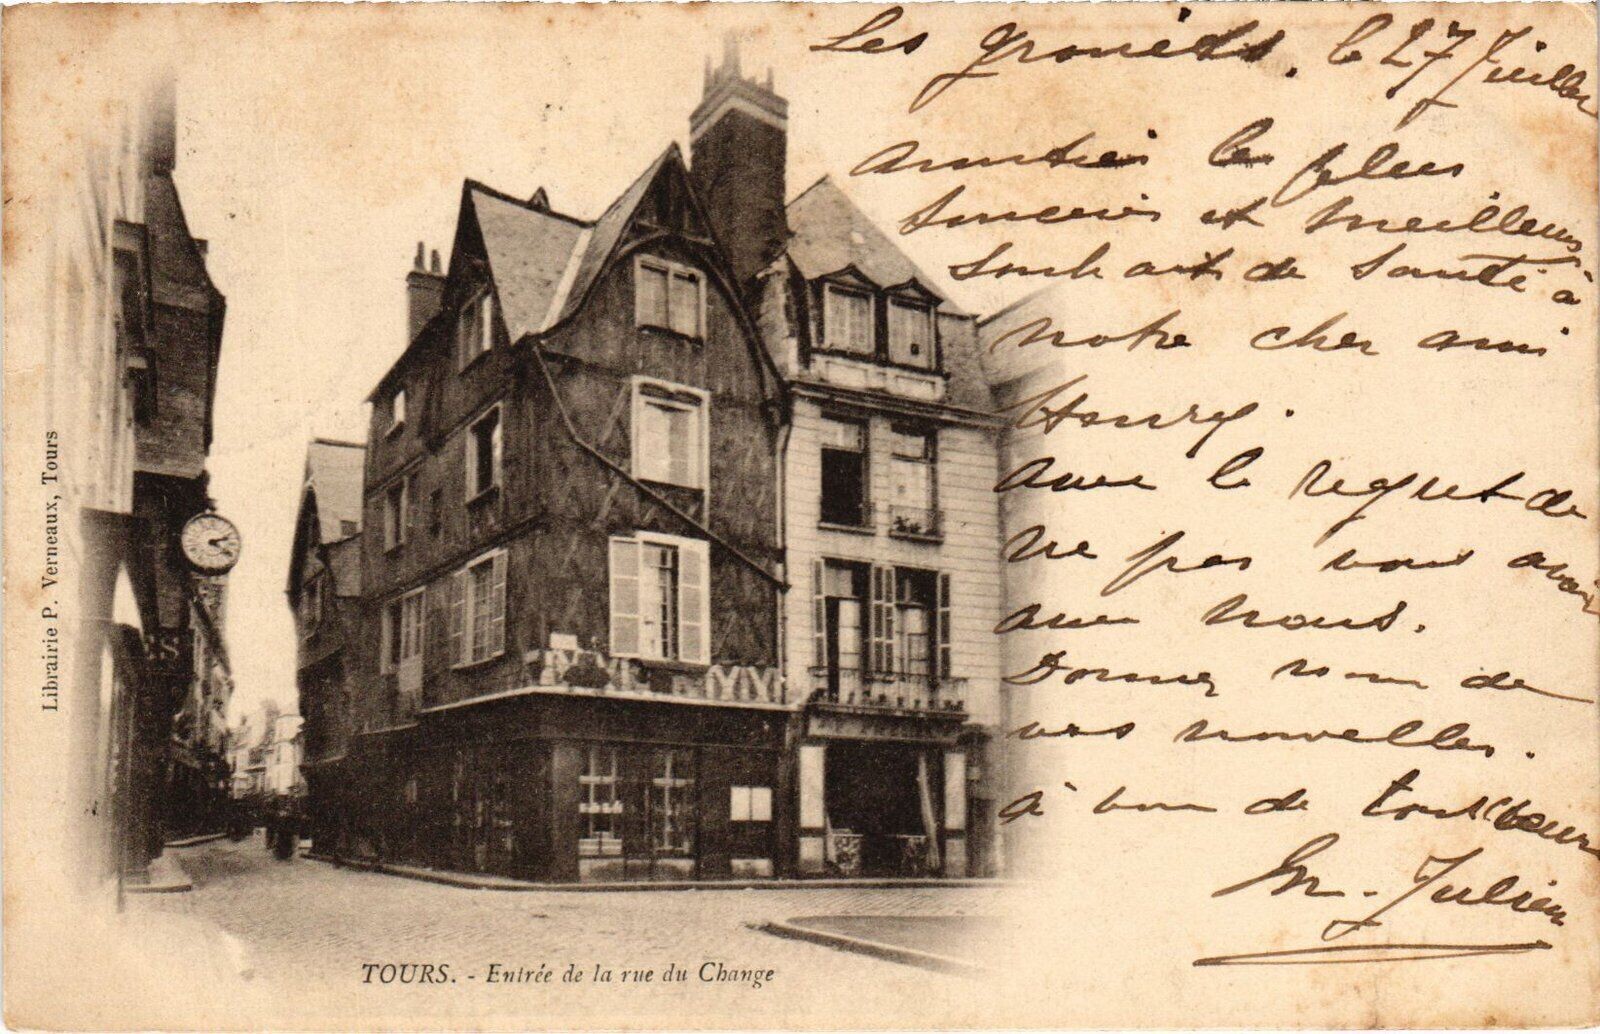 Les le 27 Juillet
Amitiés les plus
sincères et meilleurs
souhaits de santé à
notre cher ami
Henry.
avec le regret de
ne pas vous avoir
avec nous.
Donnez nous de
vos nouvelles.
à vous de tout coeur
M. Julien
Librairie P. Verneaux, Tours
TOURS. - Entrée de la rue du Change